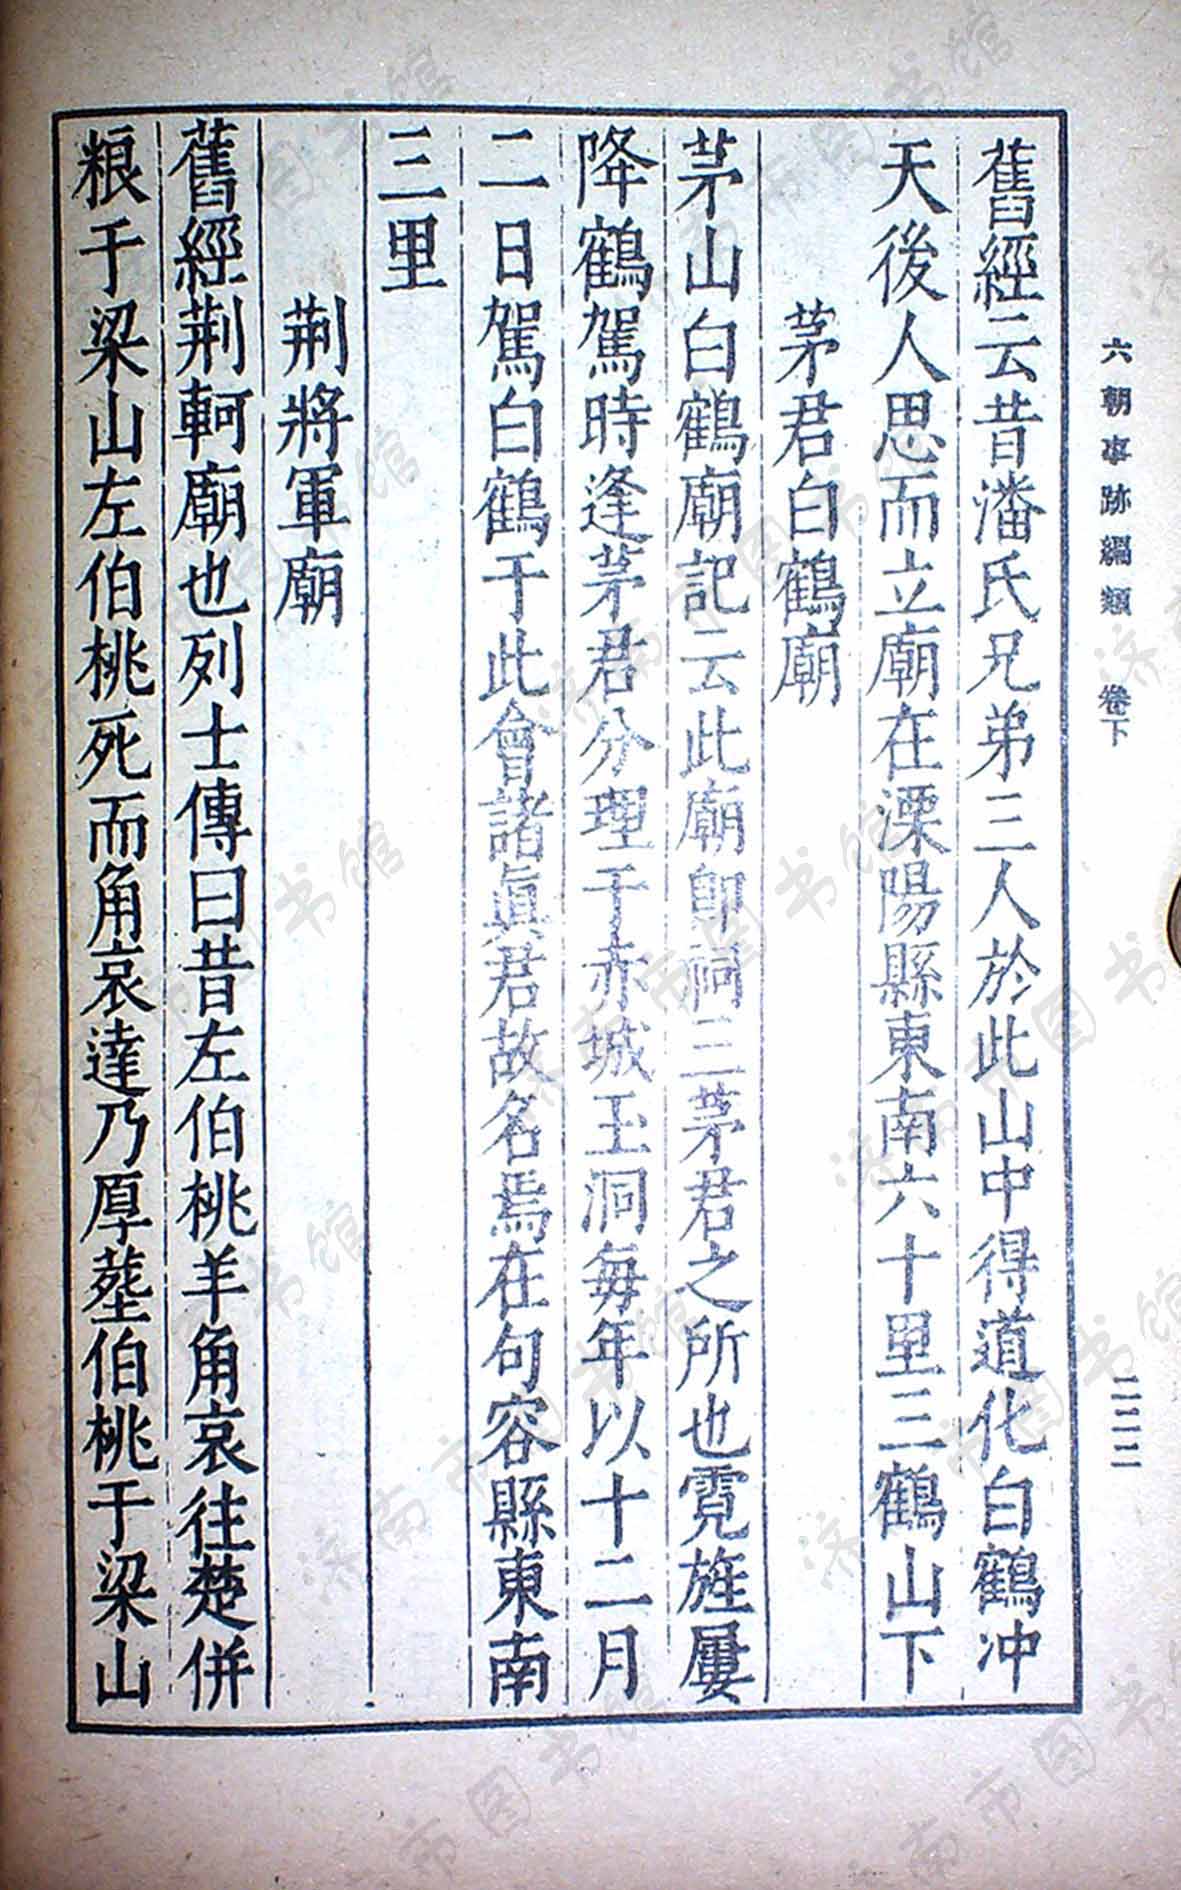 六朝事跡編類 卷下
二二二
舊經云昔潘氏兄弟三人於此山中得道化白鶴冲
天後人思而立廟在溧陽縣東南六十里三鶴山下
茅君白鶴廟
茅山白鶴廟記云此廟即祠三茅君之所也霓旌屢
降鶴駕時逢茅君分理于赤城玉洞每年以十二月
二日駕白鶴于此會諸眞君故名焉在句容縣東南
三里
荆將軍廟
舊經荆軻廟也列士傳曰昔左伯桃羊角哀往楚併
粮于梁山左伯桃死而角哀達乃厚塟伯桃于梁山
济南市图书馆